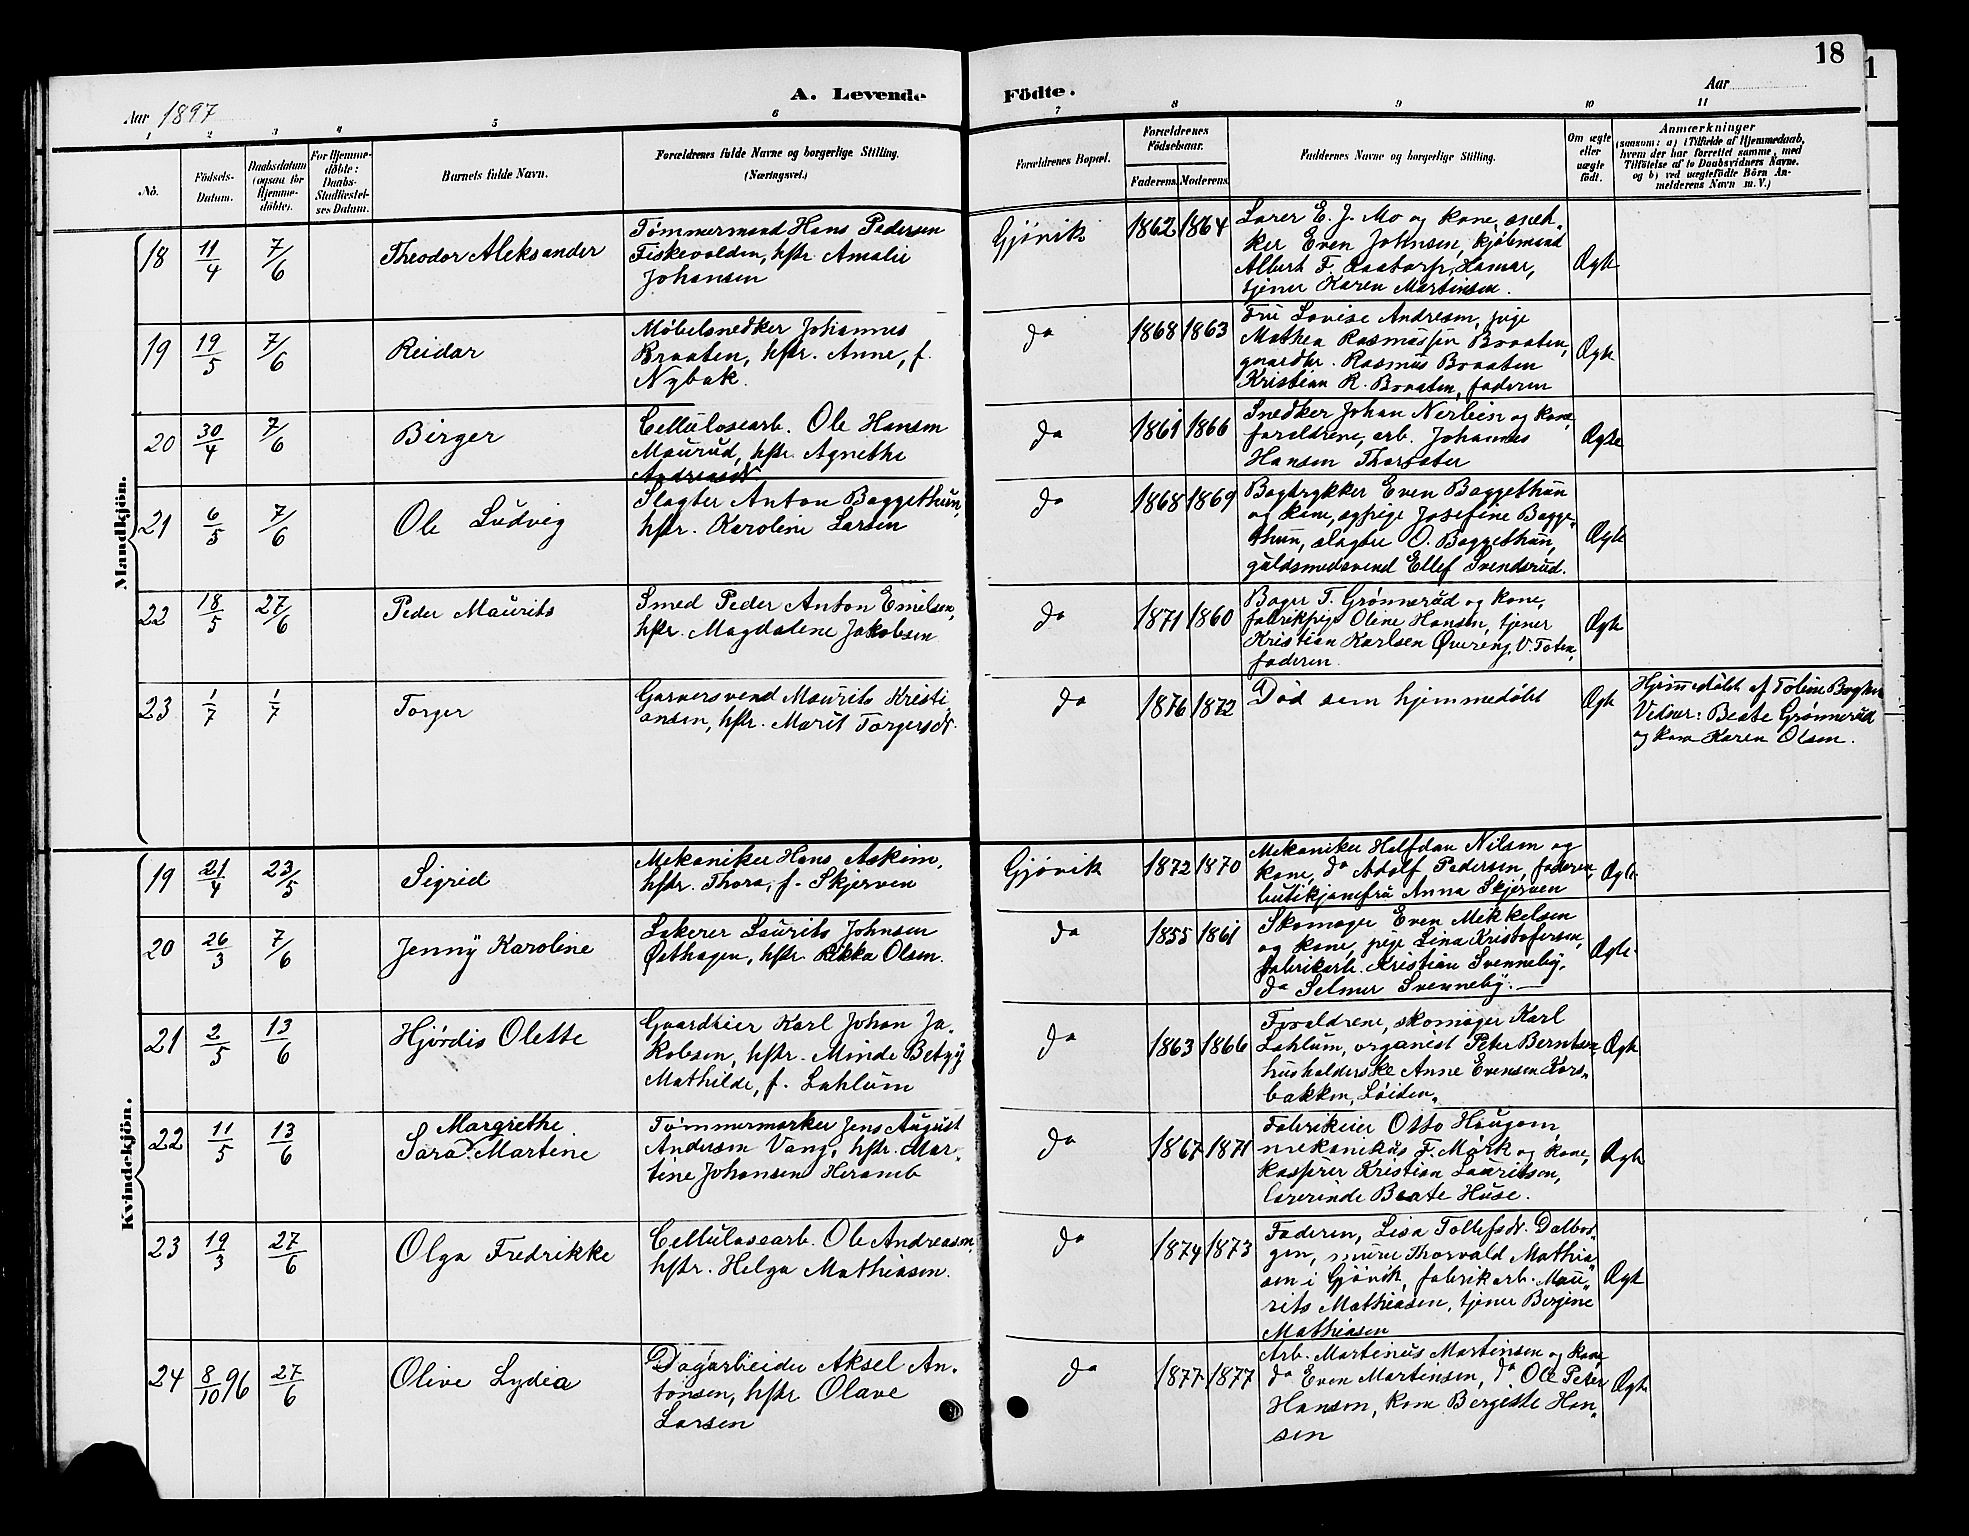 18
1
Aar 1897
A. Levende Födte.
Aar
1 2 3 4 5 6 7 8 9 10 11
No.
Födsels-
Datum.
Daabsdatum
(ogsaa for
Hjemme-
döbte).
For Hjemme-
döbte:
Daabs-
Stadfæstel-
ses Datum.
Barnets fulde Navn.
Forældrenes fulde Navne og borgerlige Stilling.
(Næringsvei.)
Forældrenes Bopæl.
Forældrenes
Födselsaar.
Faderens. Moderens.
Faddernes Navne og borgerlige Stilling.
Om ægte
eller
uægte
födt.
Anmærkninger
(saasom: a) i Tilfælde af Hjemmedaab,
hvem der har forrettet samme, med
Tilföielse af to Daabsvidners Navne.
og b) ved uægtefödte Börn An-
melderens Navn m. V.)
Mandkjön.
18 11/4 7/6 Theodor Aleksander
Tømmermand Hans Pedersen
Fiskevolden, hstr. Amalie
Johansen
Gjøvik 1862 1864
Lærer E. J. Mo og kone, snek-
ker Even Johnsen, kjøbmand
Albert F. Hamar,
tjener Karen Martinsen.
Ægte
19 19/5 7/6 Reidar
Møbelsnedker Johannes
Braaten, hstr. Anne, f.
Nybak.
do 1868 1863
Fru Lovise Andresen, pige
Mathea Rasmussen Braaten,
gaardbr. Rasmus Braaten
Kristian R. Braaten, faderen
Ægte
20 30/4 7/6 Birger
Cellulosearb. Ole Hansen
Maurud, hstr. Agnethe
Andreasdt
do 1861 1866
Snedker Johan Nerlien og kone,
forældrene, arb. Johannes
Hansen Thorsæter
Ægte
21 6/5 7/6 Ole Ludvig
Slagter Anton Baggethun,
hstr. Karoline Larsen
do 1868 1869
Bogtrykker Even Baggethun
og kone, og pige Josefine Bagge-
thun, slagter O. Baggethun,
guldsmedsvend Ellef Svendsrud.
Ægte
22 18/5 27/6 Peder Maurits
Smed Peder Anton Emilsen,
hstr. Magdalene Jakobsen
do 1871 1860
Bager T. Grønnerud og kone,
fabrikpige Oline Hansen, tjener
Kristian Karlsen Øvereng, V. Toten,
faderen.
Ægte
23 1/7 1/7 Torger
Garversvend Maurits Kristi
ansen, hstr. Marit Torgersdt.
do 1876 1872
Død som hjemmedøbt
Ægte
Hjemmedøbt af Toline
Vidner: Beate Grønnerud
og kone Karen Olsen.
Kvindekjön.
19 21/4 23/5 Sigrid
Mekaniker Hans Askim,
hstr. Thora, f. Skjerven
Gjøvik 1872 1870
Mekaniker Halfdan Nilsen og
kone, do Adolf Pedersen, faderen,
butikjomfru Anna Skjerven
Ægte
20 26/3 7/6 Jenny Karoline
Lakerer Laurits Johnsen
Østhagen, hstr. Rikka Olsen.
do 1855 1861
Skomager Even Mikkelsen
og kone, pige Lina Kristofersen,
fabrikarb. Kristian Svenneby,
do Selmer Svenneby.
Ægte
21 2/5 13/6 Hjørdis Olette
Gaardeier Karl Johan Ja-
kobsen, hstr. Minde Betzy
Mathilde, f. Lahlum
do 1863 1866
Forældrene, skomager Karl
Lahlum, organist Peter Berntsen,
husholderske Anne Evensen Kors-
bakken, Løiten.
Ægte
22 11/5 13/6 Sara Margrethe Martine
Tømmermerker Jens August
Andersen Vang, hstr. Mar-
tine Johansen Heramb
do 1867 1871
Fabrikeier Otto Haugom,
mekanikus F. Mørk og kone,
kasserer Kristian Lauritsen,
lærerinde Beate Huse.
Ægte
23 19/3 27/6 Olga Fredrikke
Cellulosearb. Ole Andreasen,
hstr. Helga Mathiasen.
do 1874 1873
Faderen, Lisa Tollefsdt. Dalbor-
gen, murer Thorvald Mathia-
sen i Gjøvik, fabrikarb. Mau-
rits Mathiasen, tjener Bergine
Mathiasen
Ægte
24 8/10 96 27/6 Olive Lydia
Dagarbeider Aksel An-
tonsen, hstr Olave
Larsen
do 1877 1877
Arb. Martinus Martinsen og kone,
do Even Martinsen, do Ole Peter
Hansen, kone Bergitte Han-
sen
Ægte